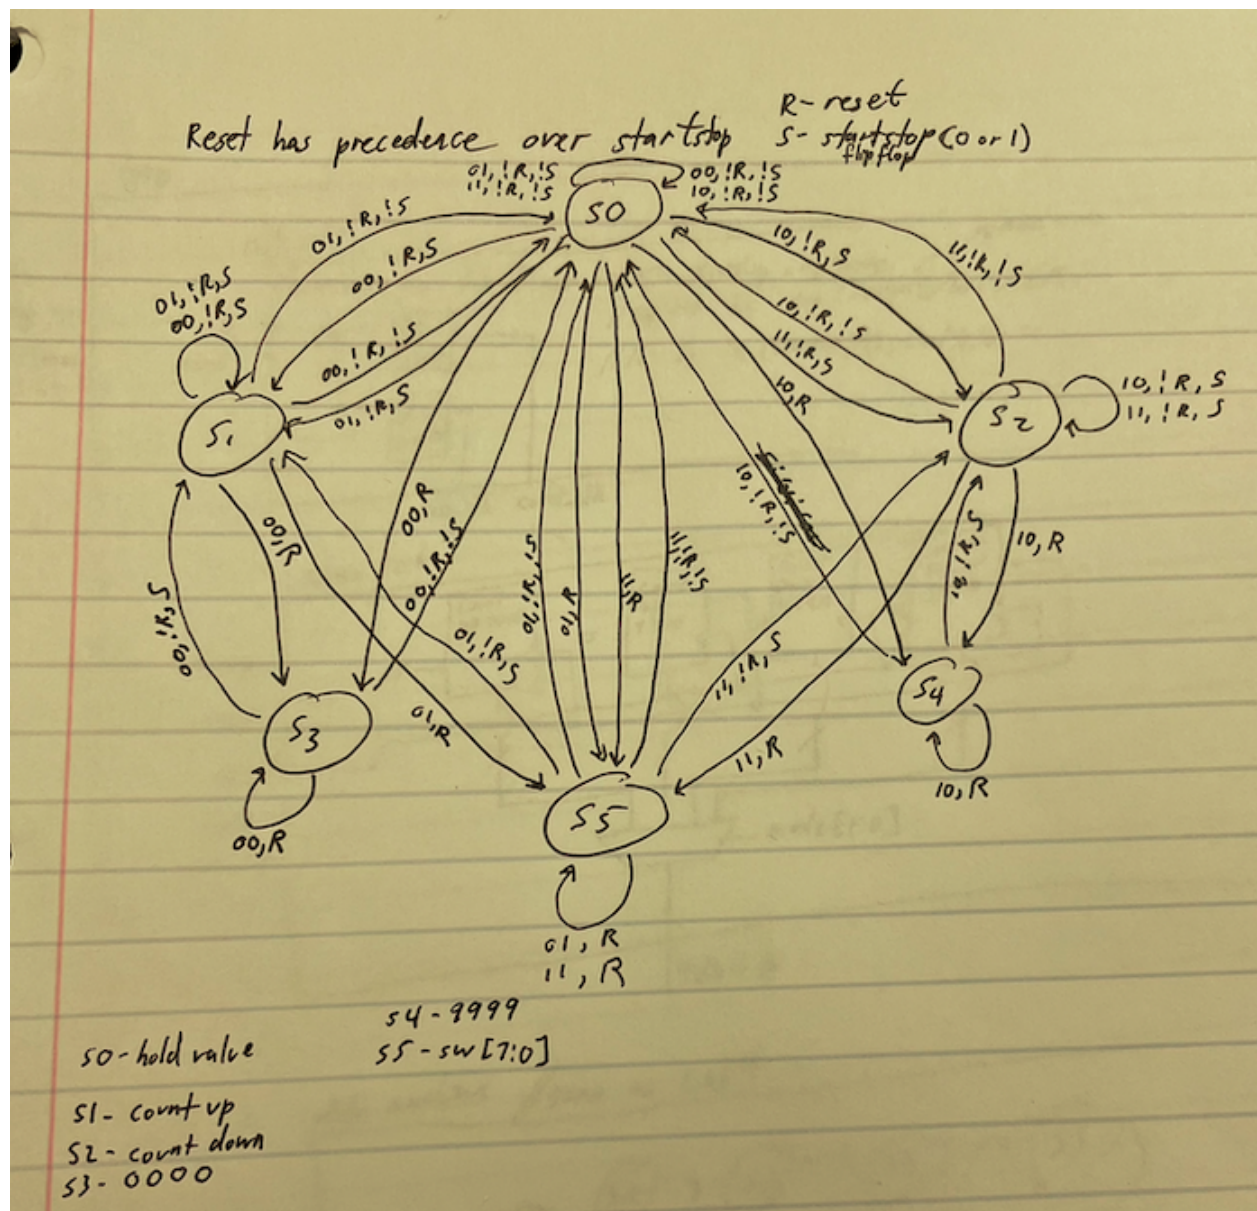 R- reset
Reset has precedence over startstop
S- startstop (0 or 1)
flipflop
01, !R, !S
11, !R, !S
00, !R, !S
10, !R, !S
S0
01, !R, !S
00, !R, S
10, !R, S
11, !R, !S
01, !R, S
00, !R, S
00, !R, !S
01, !R, S
10, !R, !S
11, !R, S
10, R
10, !R, S
11, !R, S
S1
S2
00, R
00, R
00, !R, !S
10, !R, !S
10, !R, S
10, R
01, !R, !S
01, R
11, R
11, !R, !S
00, !R, S
01, !R, S
11, !R, S
S3
01, R
11, R
S4
10, R
00, R
S5
01, R
11, R
S4 - 9999
S0 - hold value
S5 - sw [7:0]
S1 - count up
S2 - count down
S3 - 0000